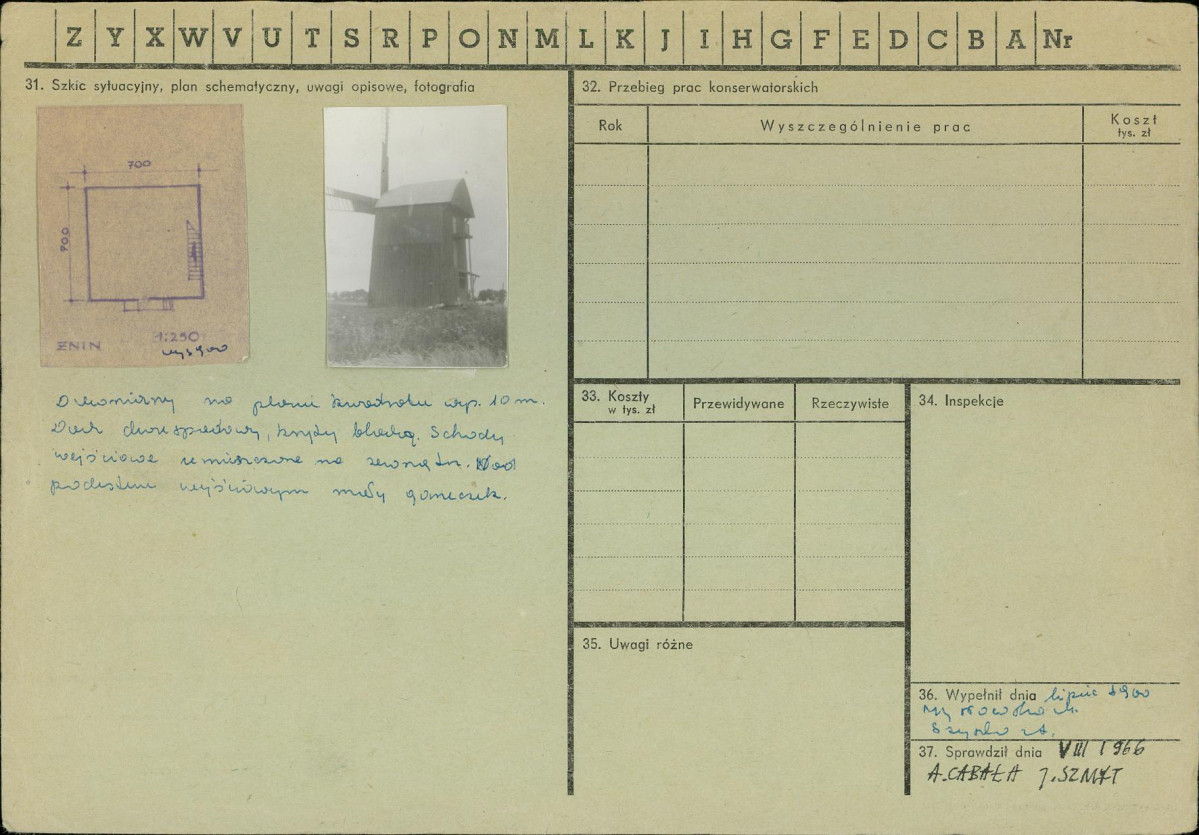 Z Y X W V U T S R P O N M L K J I H G F E D C B A Nr
31. Szkic sytuacyjny, plan schematyczny, uwagi opisowe, fotografia
700
700
ENIN
1:250
Drewniany na planie kwadratu wys. 10 m.
Dach dwuspadowy, kryty blachą. Schody
wejściowe umieszczone na zewnątrz. Nad
podestem wejściowym mały ganeczek.
32. Przebieg prac konserwatorskich
Rok
Wyszczególnienie prac
Koszt
tys. zł
33. Koszty
w tys. zł
Przewidywane
Rzeczywiste
34. Inspekcje
35. Uwagi różne
36. Wypełnił dnia lipiec
37. Sprawdził dnia VIII 1966
A. CABAŁA J. SZMYT